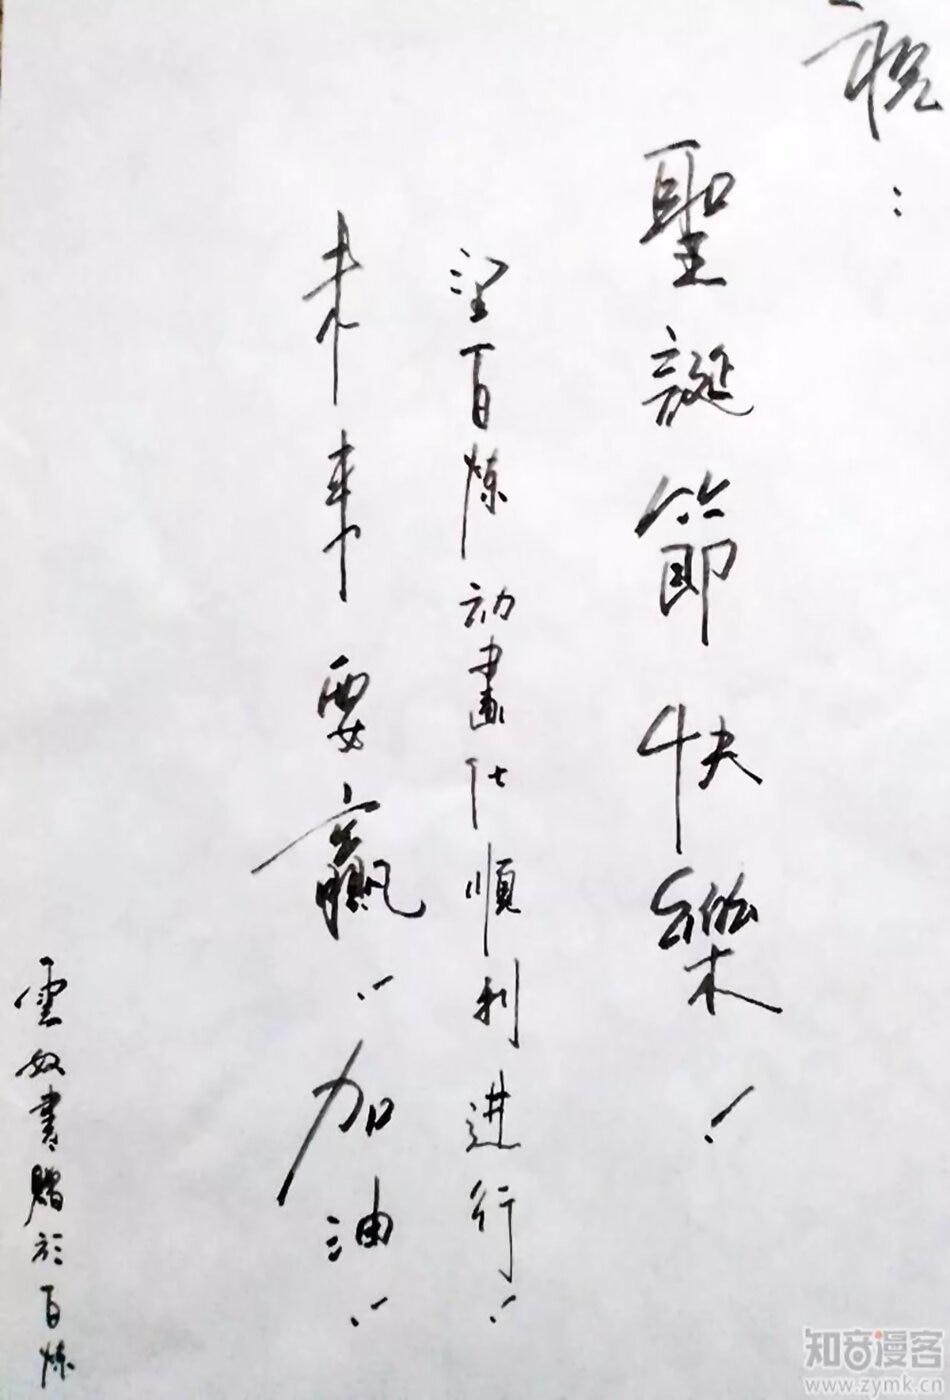 祝：
聖誕節快樂！
望百炼动畫化順利进行！
未来要贏！加油！
雲奴書贈於百炼
知音漫客
www.zymk.cn